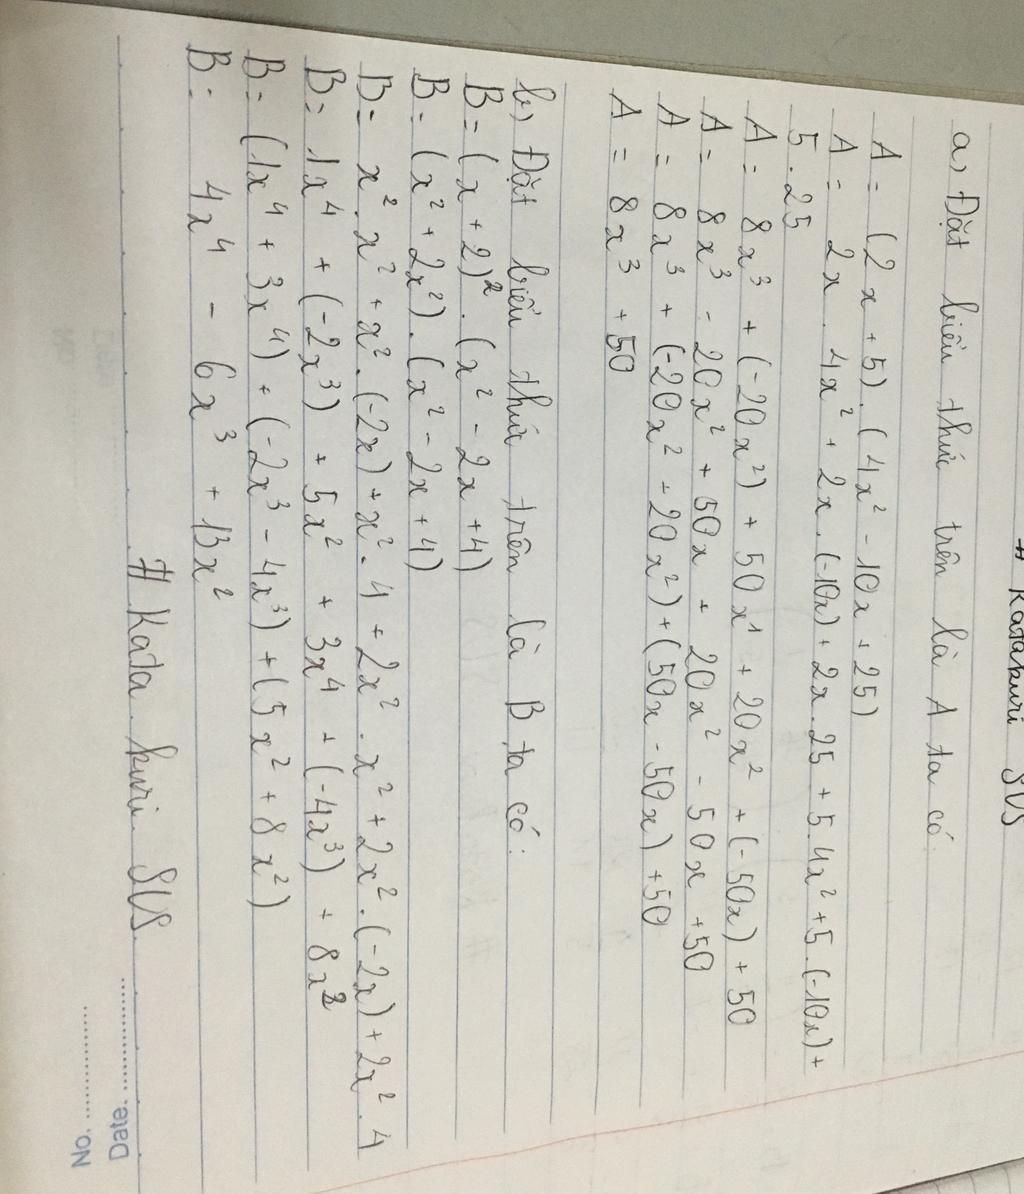 # Katakuri SUS
a, Đặt biểu thức trên là A ta có:
A = (2x + 5) . (4x² - 10x + 25)
A = 2x . 4x² + 2x . (-10x) + 2x . 25 + 5 . 4x² + 5 . (-10x) +
5 . 25
A = 8x³ + (-20x²) + 50x¹ + 20x² + (-50x) + 50
A = 8x³ - 20x² + 50x + 20x² - 50x + 50
A = 8x³ + (-20x² + 20x²) + (50x - 50x) + 50
A = 8x³ + 50
b, Đặt biểu thức trên là B ta có:
B = (x + 2)² . (x² - 2x + 4)
B = (x² + 2x²) . (x² - 2x + 4)
B = x² . x² + x² . (-2x) + x² . 4 + 2x² . x² + 2x² . (-2x) + 2x² . 4
B = 1x⁴ + (-2x³) + 5x² + 3x⁴ + (-4x³) + 8x²
B = (1x⁴ + 3x⁴) + (-2x³ - 4x³) + (5x² + 8x²)
B = 4x⁴ - 6x³ + 13x²
# Kata kuri SUS
No.
Date.